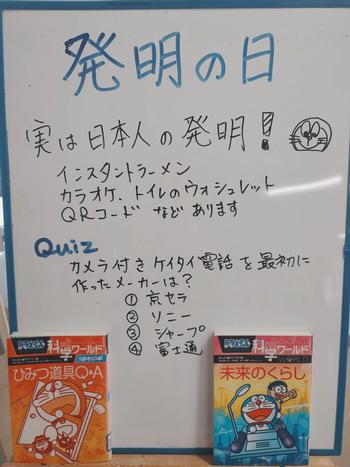 発明の日
実は日本人の発明!
インスタントラーメン
カラオケ、トイレのウォシュレット
QRコード などあります
Quiz
カメラ付きケイタイ電話を最初に
作ったメーカーは?
① 京セラ
② ソニー
③ シャープ
④ 富士通
ドラえもん
科学ワールド
special
ひみつ道具Q&A
ドラえもん
科学ワールド
WORLD
未来のくらし